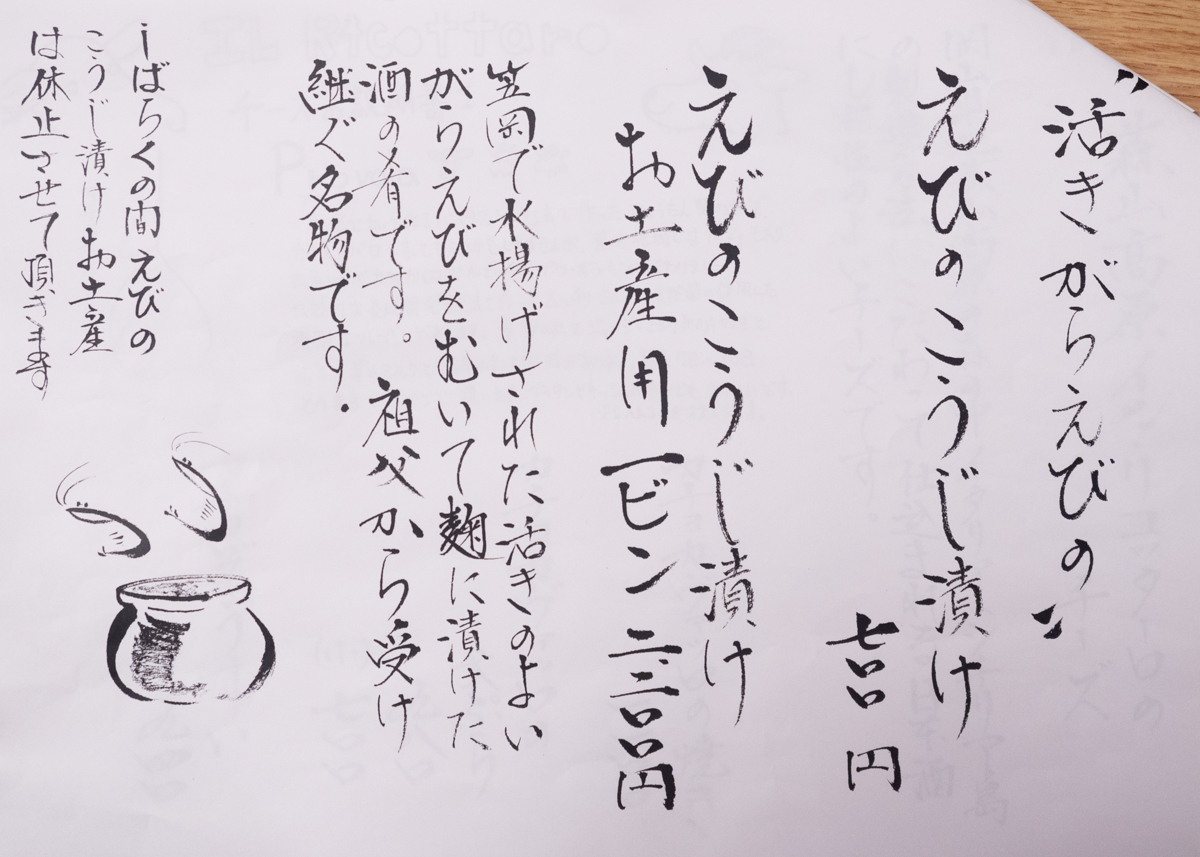 〝活きがらえびの〟
えびのこうじ漬け
七〇〇円
えびのこうじ漬け
お土産用一ビン 二三〇〇円
笠岡で水揚げされた活きのよい
がらえびをむいて麹に漬けた
酒の肴です。祖父から受け
継ぐ名物です.
しばらくの間えびの
こうじ漬けお土産
は休止させて頂きます